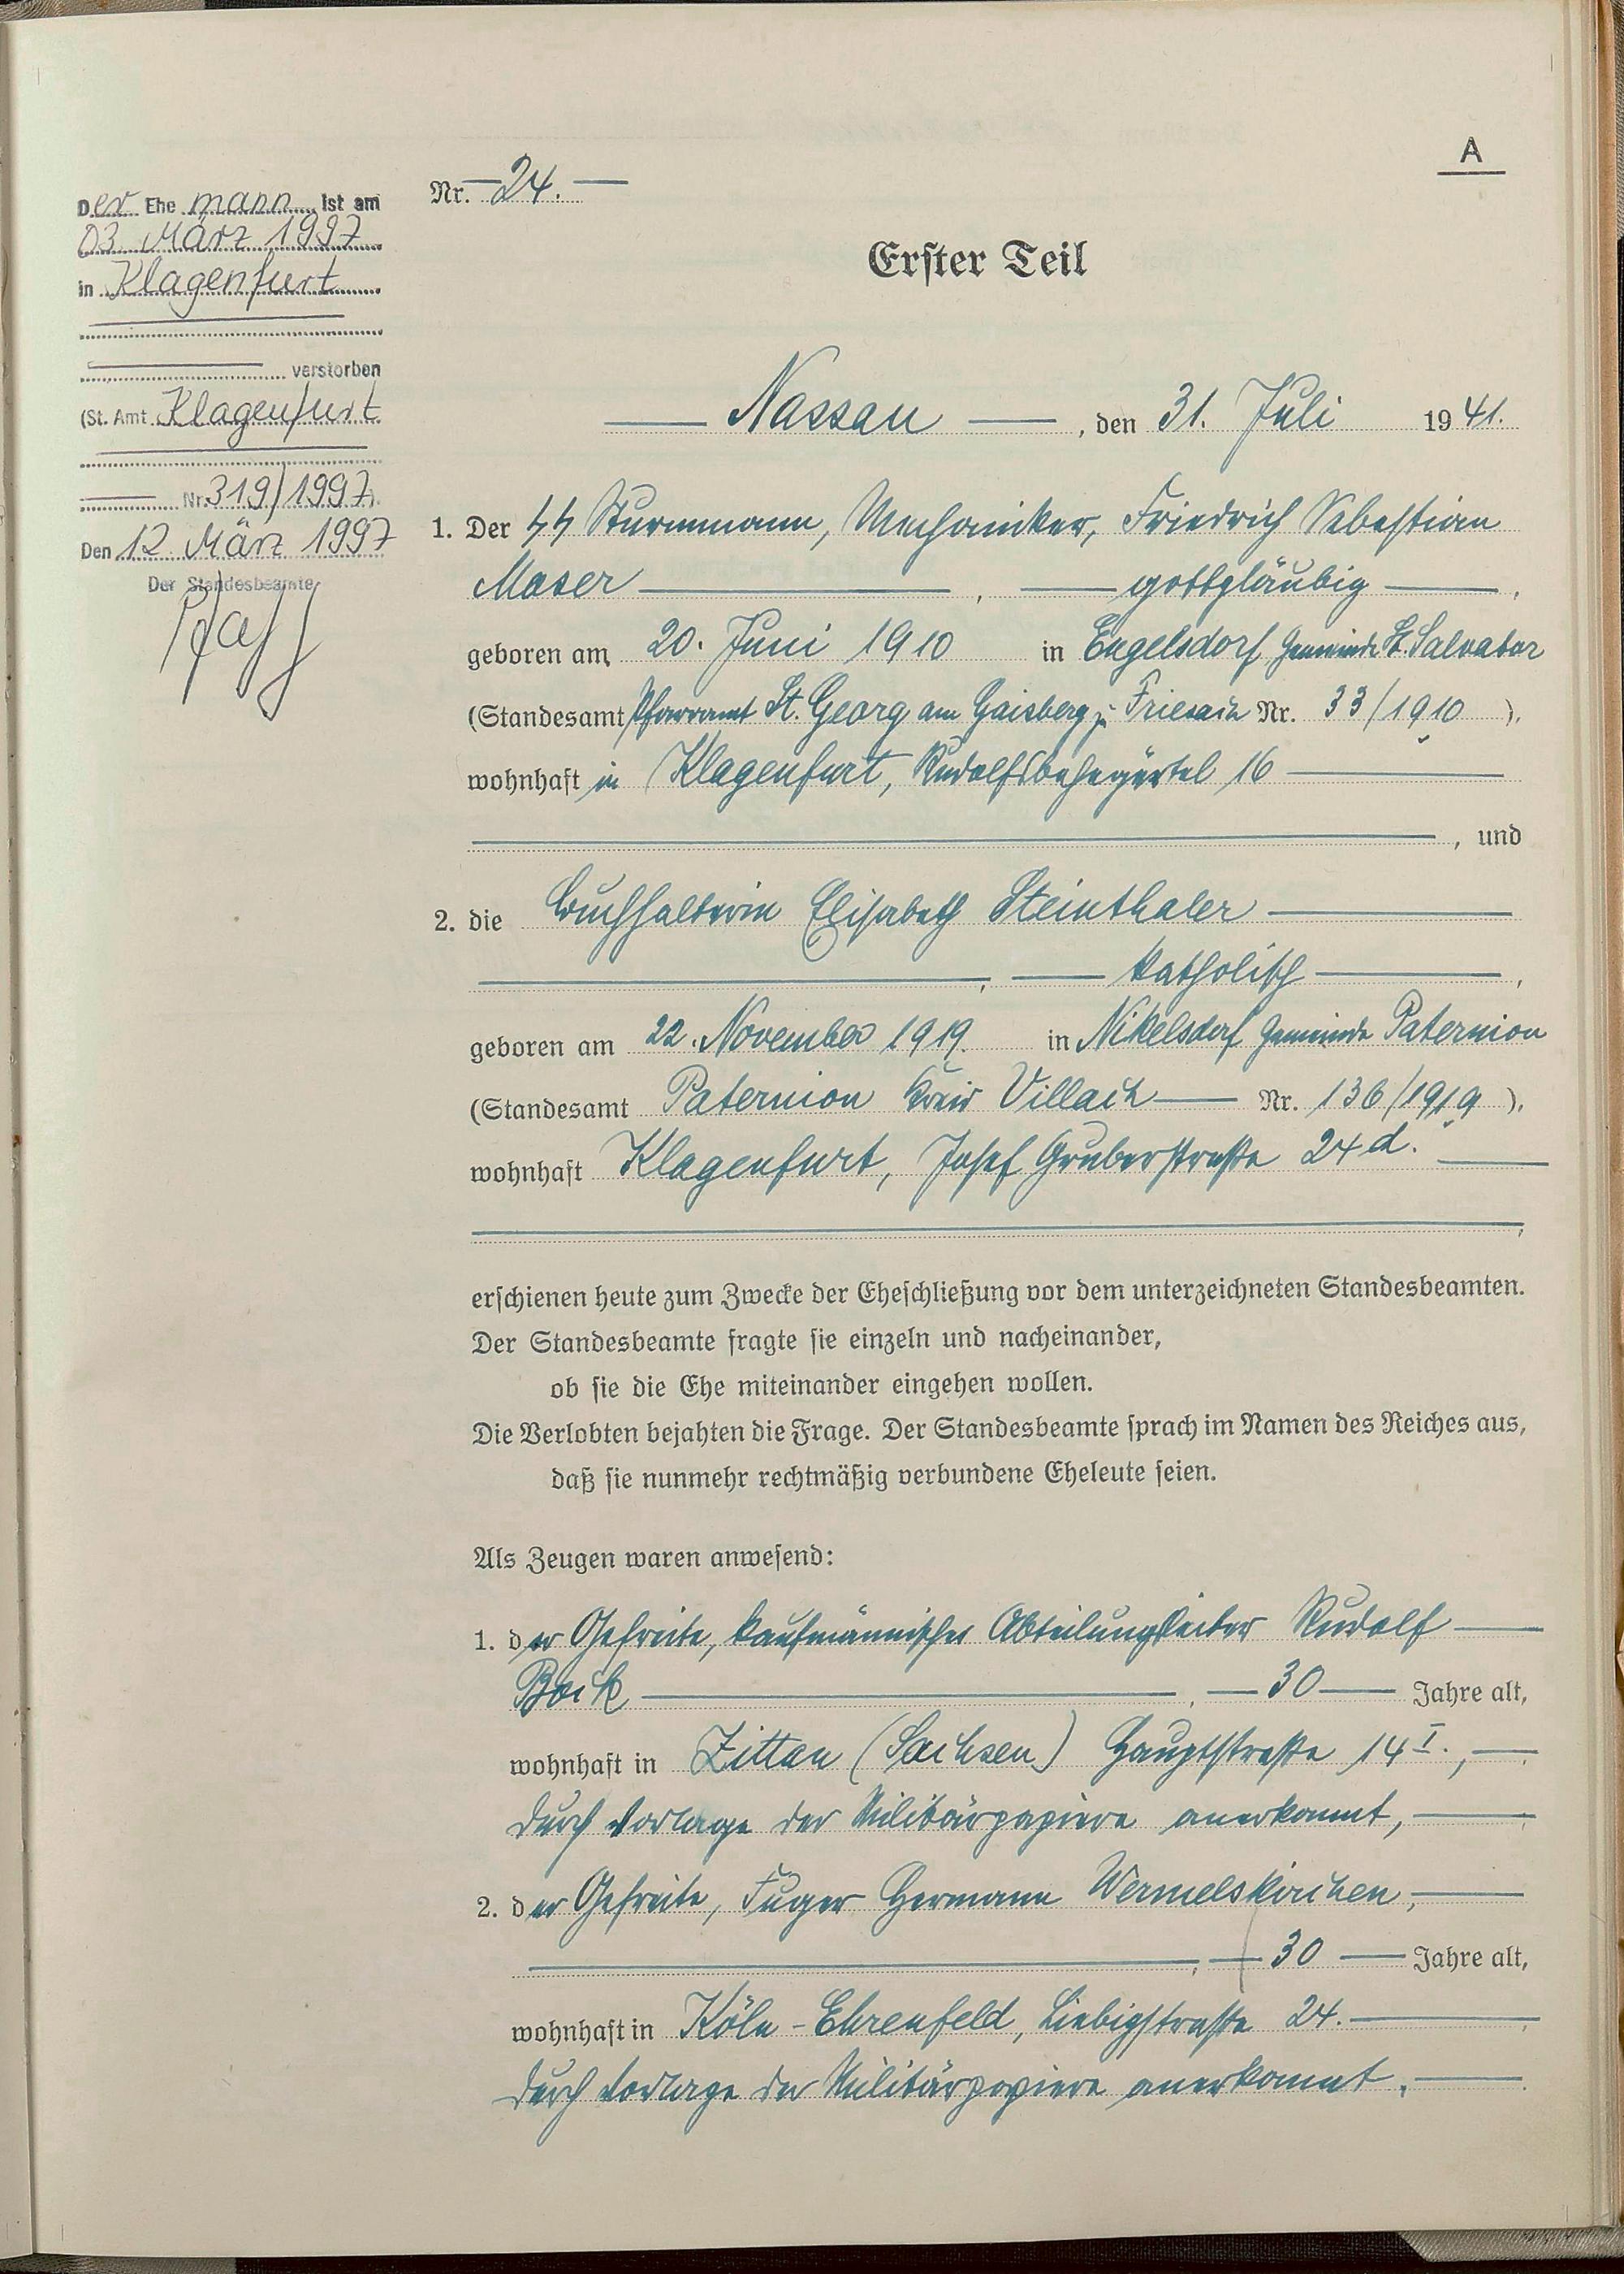 A
Der Ehe mann ist am
03. März 1997
in Klagenfurt
verstorben
(St. Amt Klagenfurt
Nr. 319/1997).
Den 12. März 1997
Der Standesbeamte
Nr. 24.
Erster Teil
Nassau, den 31. Juli 1941.
1. Der ᛋᛋ Sturmmann, Mechaniker, Friedrich Sebastian
Moser, gottgläubig,
geboren am 20. Juni 1910 in Engelsdorf Gemeinde St. Salvator
(Standesamt Pfarramt St. Georg am Gaisberg z. Friesach Nr. 33/1910),
wohnhaft in Klagenfurt, Rudolfsbahngürtel 16
, und
2. die Buchhalterin Elisabeth Steinthaler
, katholisch,
geboren am 22. November 1919. in Nikelsdorf Gemeinde Paternion
(Standesamt Paternion Kreis Villach Nr. 136/1919),
wohnhaft Klagenfurt, Josef Gruberstraße 24d.
erschienen heute zum Zwecke der Eheschließung vor dem unterzeichneten Standesbeamten.
Der Standesbeamte fragte sie einzeln und nacheinander,
ob sie die Ehe miteinander eingehen wollen.
Die Verlobten bejahten die Frage. Der Standesbeamte sprach im Namen des Reiches aus,
daß sie nunmehr rechtmäßig verbundene Eheleute seien.
Als Zeugen waren anwesend:
1. der Gefreite, kaufmännischer Abteilungsleiter Rudolf
Bock, 30 Jahre alt,
wohnhaft in Zittau (Sachsen) Hauptstraße 14 I.,
durch Vorlage der Militärpapiere anerkannt,
2. der Gefreite, Fuger Hermann Wermelskirchen,
, 30 Jahre alt,
wohnhaft in Köln-Ehrenfeld, Liebigstraße 24.
durch Vorlage der Militärpapiere anerkannt.